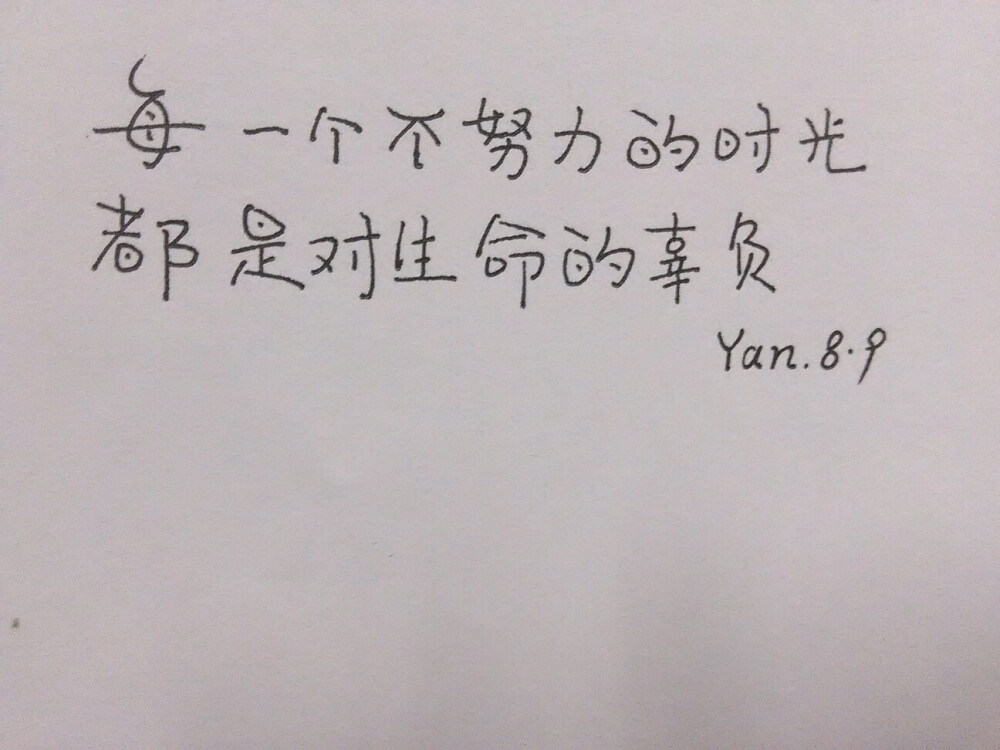 每一个不努力的时光
都是对生命的辜负
Yan.8.9